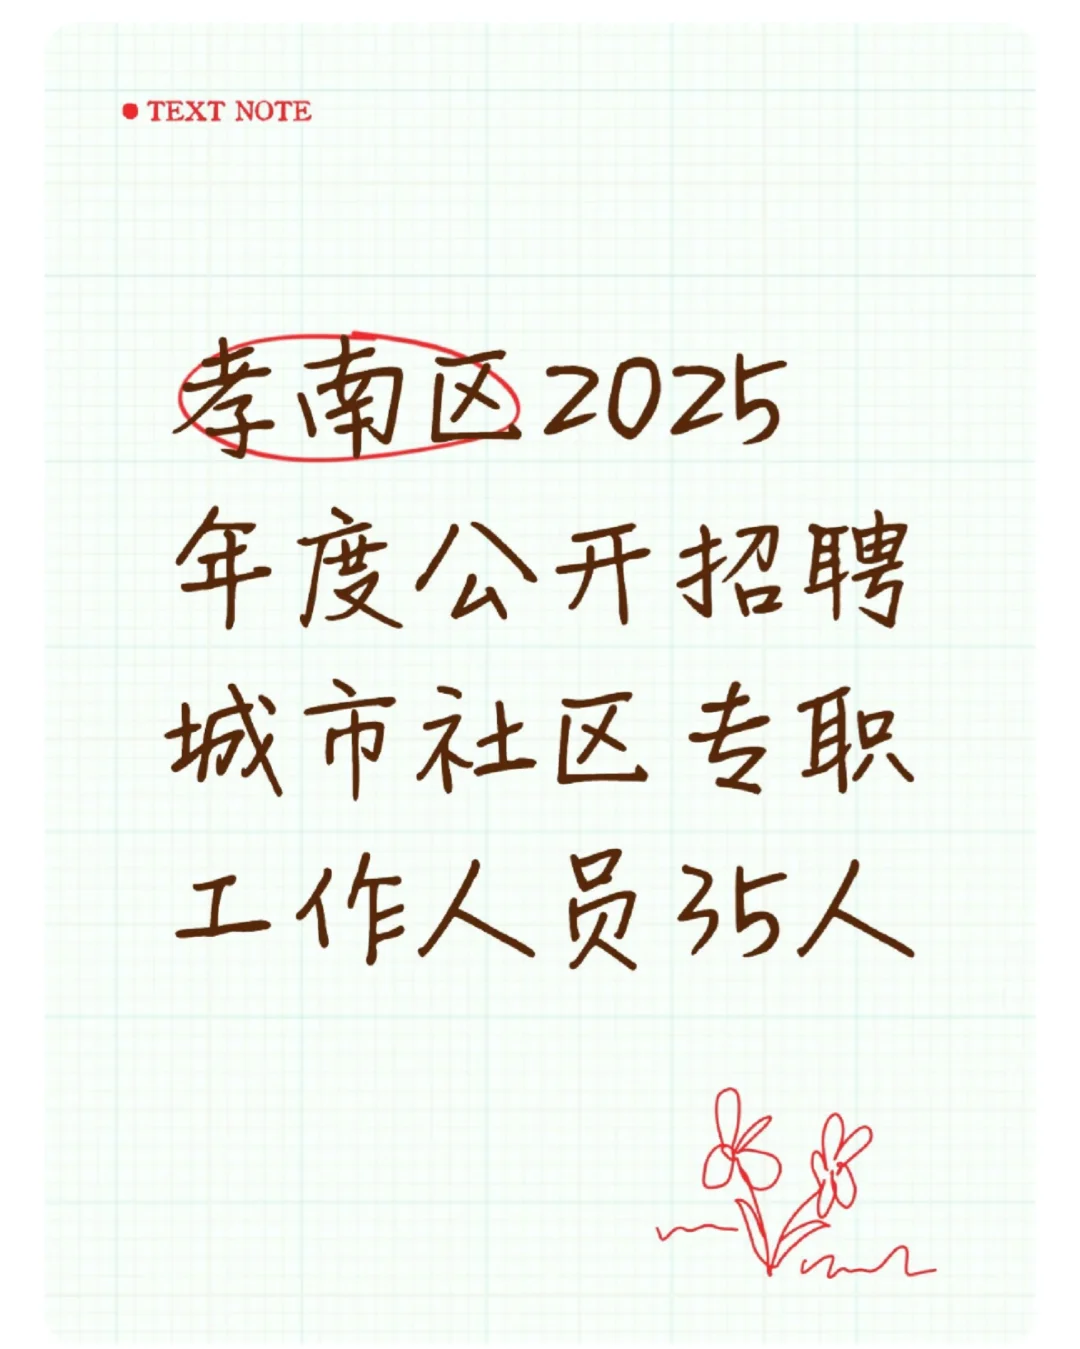 TEXT NOTE
孝南区2025
年度公开招聘
城市社区专职
工作人员35人